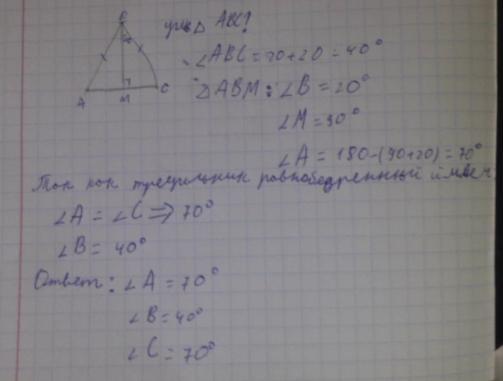 B
A
M
C
△ ABC!
∠ABC = 20 + 20 = 40°
△ABM: ∠B = 20°
∠M = 90°
∠A = 180 - (90+20) = 70°
Так как треугольник равнобедренный имеем
∠A = ∠C ⇒ 70°
∠B = 40°
Ответ: ∠A = 70°
∠B = 40°
∠C = 70°